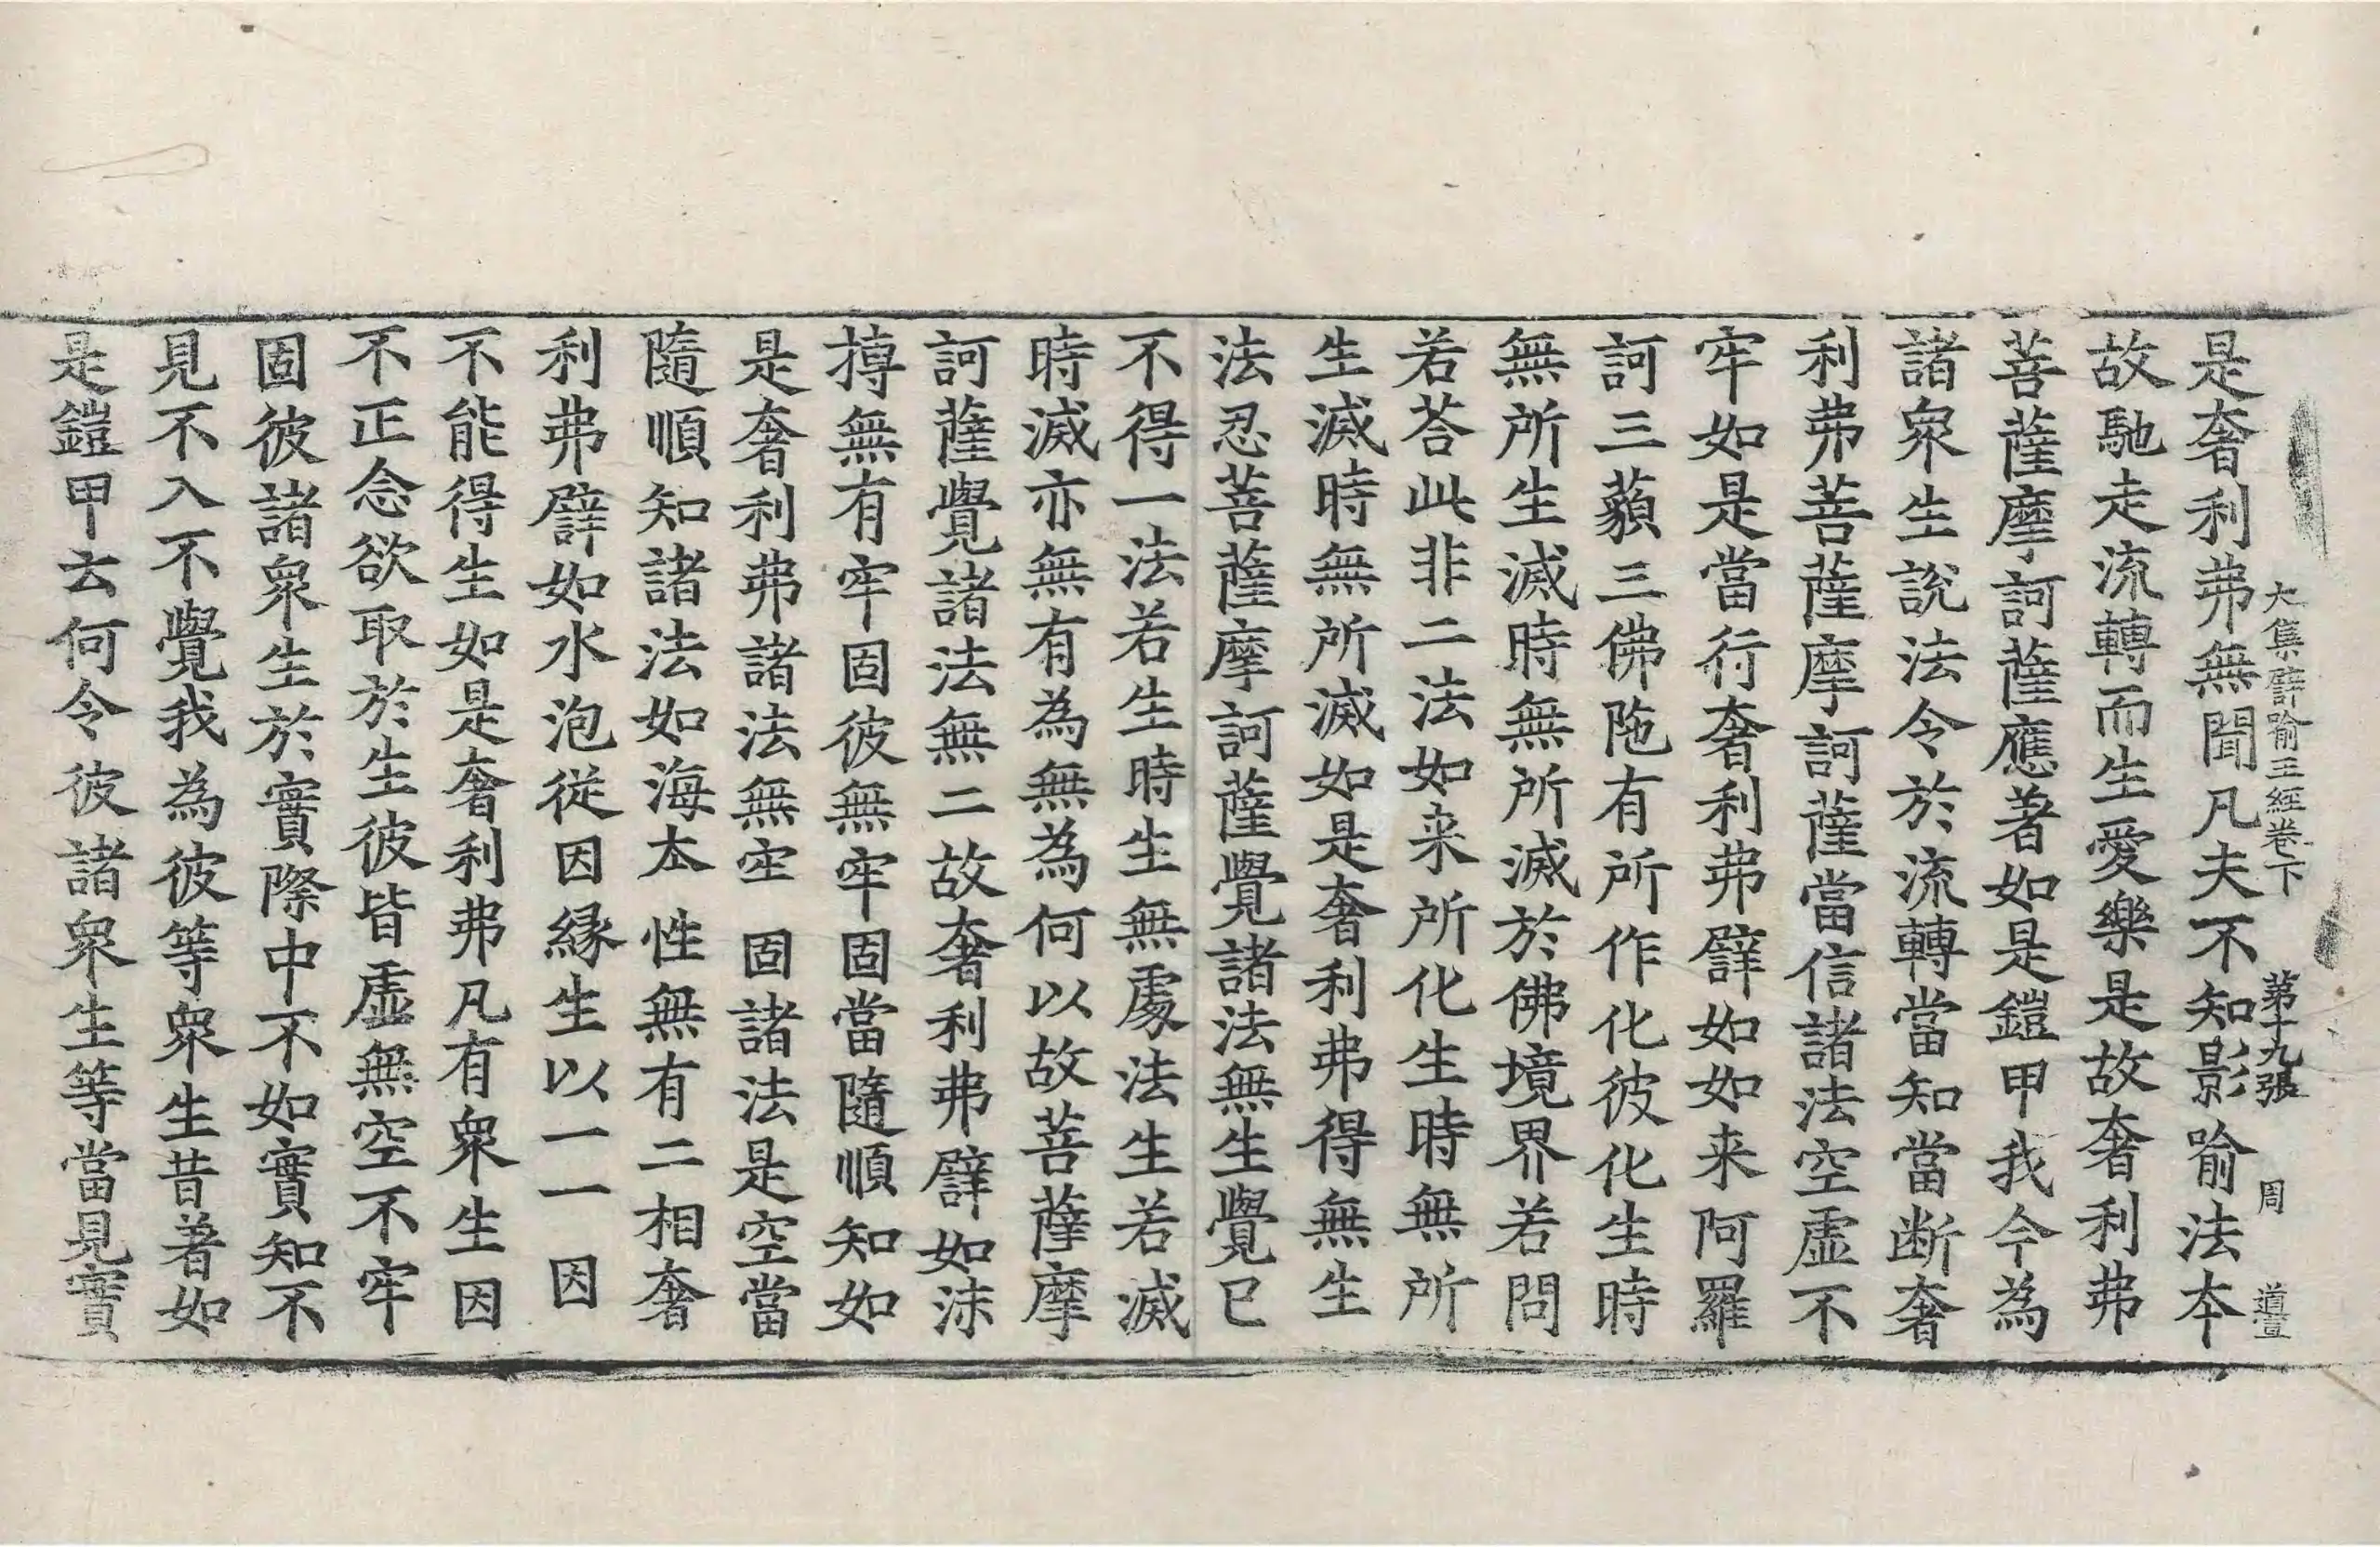 大集譬喻王經卷下　第十九張　周　道豊
是奢利弗無聞凡夫不知影喻法本
故馳走流轉而生愛樂是故奢利弗
菩薩摩訶薩應著如是鎧甲我今為
諸衆生說法令於流轉當知當断奢
利弗菩薩摩訶薩當信諸法空虛不
牢如是當行奢利弗譬如如来阿羅
訶三藐三佛陁有所作化彼化生時
無所生滅時無所滅於佛境界若問
若荅此非二法如来所化生時無所
生滅時無所滅如是奢利弗得無生
法忍菩薩摩訶薩覺諸法無生覺已
不得一法若生時生無處法生若滅
時滅亦無有為無為何以故菩薩摩
訶薩覺諸法無二故奢利弗譬如沫
摶無有牢固彼無牢固當隨順知如
是奢利弗諸法無牢固諸法是空當
隨順知諸法如海本性無有二相奢
利弗譬如水泡從因緣生以一一因
不能得生如是奢利弗凡有衆生因
不正念欲取於生彼皆虛無空不牢
固彼諸衆生於實際中不如實知不
見不入不覺我為彼等衆生昔著如
是鎧甲云何令彼諸衆生等當見實